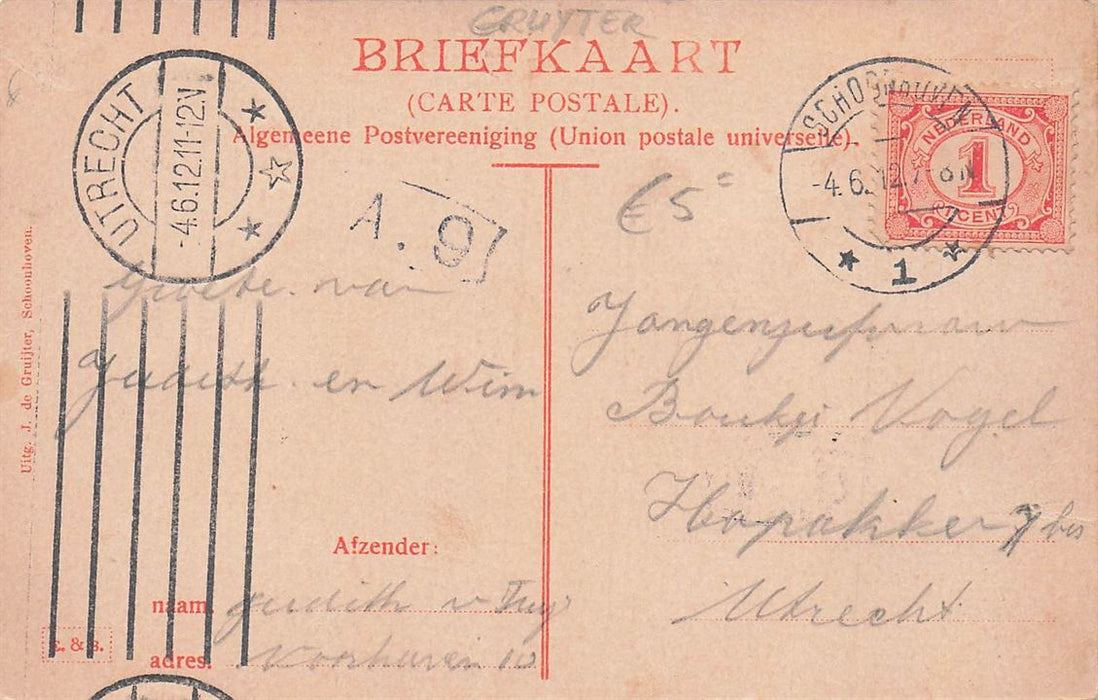 GRUYTER
BRIEFKAART
(CARTE POSTALE).
Algemeene Postvereeniging (Union postale universelle).
UTRECHT
-4.6.12.11-12V.
SCHOONHOVEN
-4.6.12.7-8N
1
NEDERLAND
1
CENT
A. 9
€5=
Groete van
Judith en Wim
Jongejufvrouw
Boukje Vogel
Hopakker 7 bis
Utrecht
Afzender:
naam. Judith v
adres. Voorhaven 10
Uitg. J. de Gruijter, Schoonhoven.
& B.